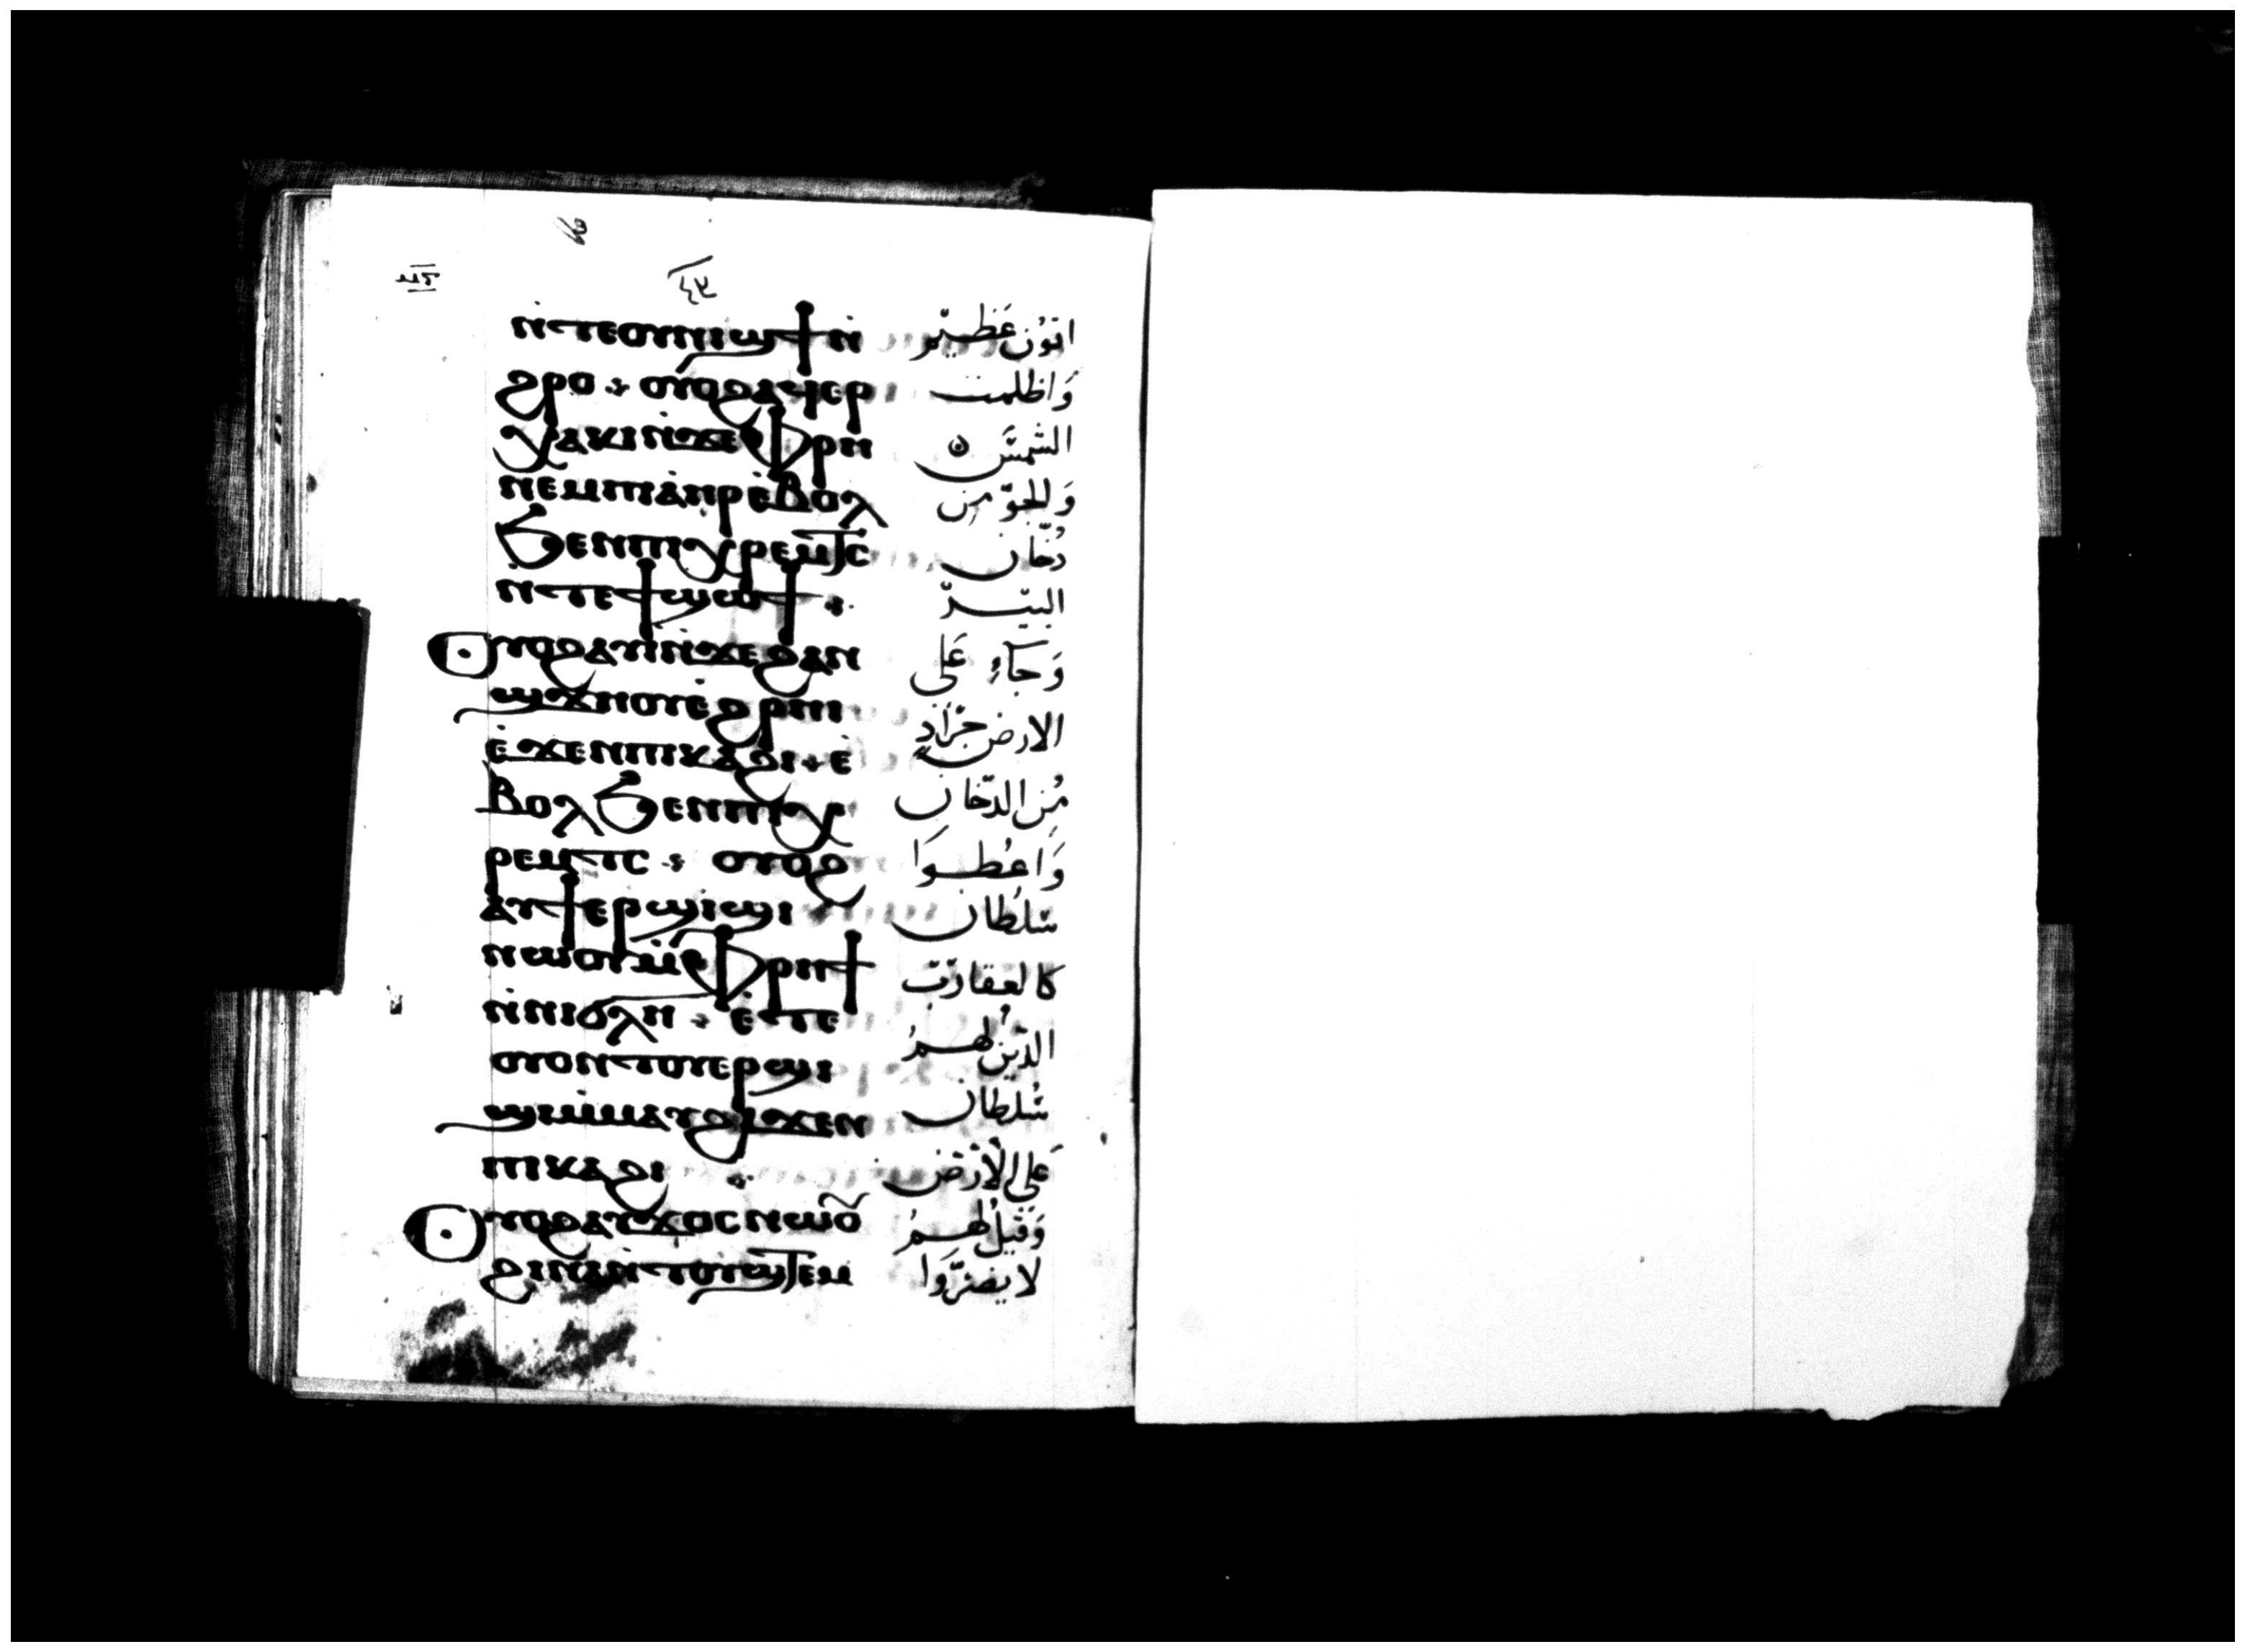 ⲛ̇ⲧⲉⲟⲩⲛⲓϣϯⲛ̇
ϩⲣⲟ ⳾ ⲟⲩⲟϩⲁϥⲉⲣ
ⲭⲁⲕⲓⲛ̇ϫⲉⲫⲣⲏ
ⲛⲉⲙⲡⲓⲁ̇ⲏⲣⲉ̇ⲃⲟⲗ
ϧⲉⲛⲡⲓⲭⲣⲉⲙⲧⲥ
ⲛ̇ⲧⲉϯϣⲱϯ ⳾
ⲟⲩⲟϩⲁⲩⲓ̇ⲛ̇ϫⲉϩⲁⲛ
ϣϫⲏⲟⲩⲉ̇ϩⲣⲏⲓ
ⲉ̇ϫⲉⲛⲡⲓⲕⲁϩⲓ ⳾ ⲉ̇
ⲃⲟⲗϧⲉⲛⲡⲓⲭ
ⲣⲉⲙⲧⲥ ⳾ ⲟⲩⲟϩ
ⲁ̇ⲩϯⲉⲣϣⲓϣⲓ
ⲛⲱⲟⲩⲙ̇ⲫⲣⲏϯ
ⲛ̇ⲛⲓϭⲗⲏ ⳾ ⲉ̇ⲧⲉ
ⲟⲩⲟⲛⲧⲟⲩⲉⲣϣⲓ
ϣⲓⲙ̇ⲙⲁⲩϩⲓϫⲉⲛ
ⲡⲓⲕⲁϩⲓ ⳾
ⲟⲩⲟϩⲁⲩϫⲟⲥⲛⲱⲟ̃
ϩⲓⲛⲁⲛ̇ⲧⲟⲩϣ̇ⲧⲉⲙ
اتون عَظيم
وَاظلمت
الشمسَ
وَللجوّ من
دُخان
البيرّ
وَجَآءِ عَلى
الارض جَرَادٍ
مُن الدّخان
وَاعُطوَا
سُلطان
كالعقارَب
الذّين لهمُ
سُلطان
عَلى الأرَض
وَقيلَ لهمُ
لا يضرّوَا